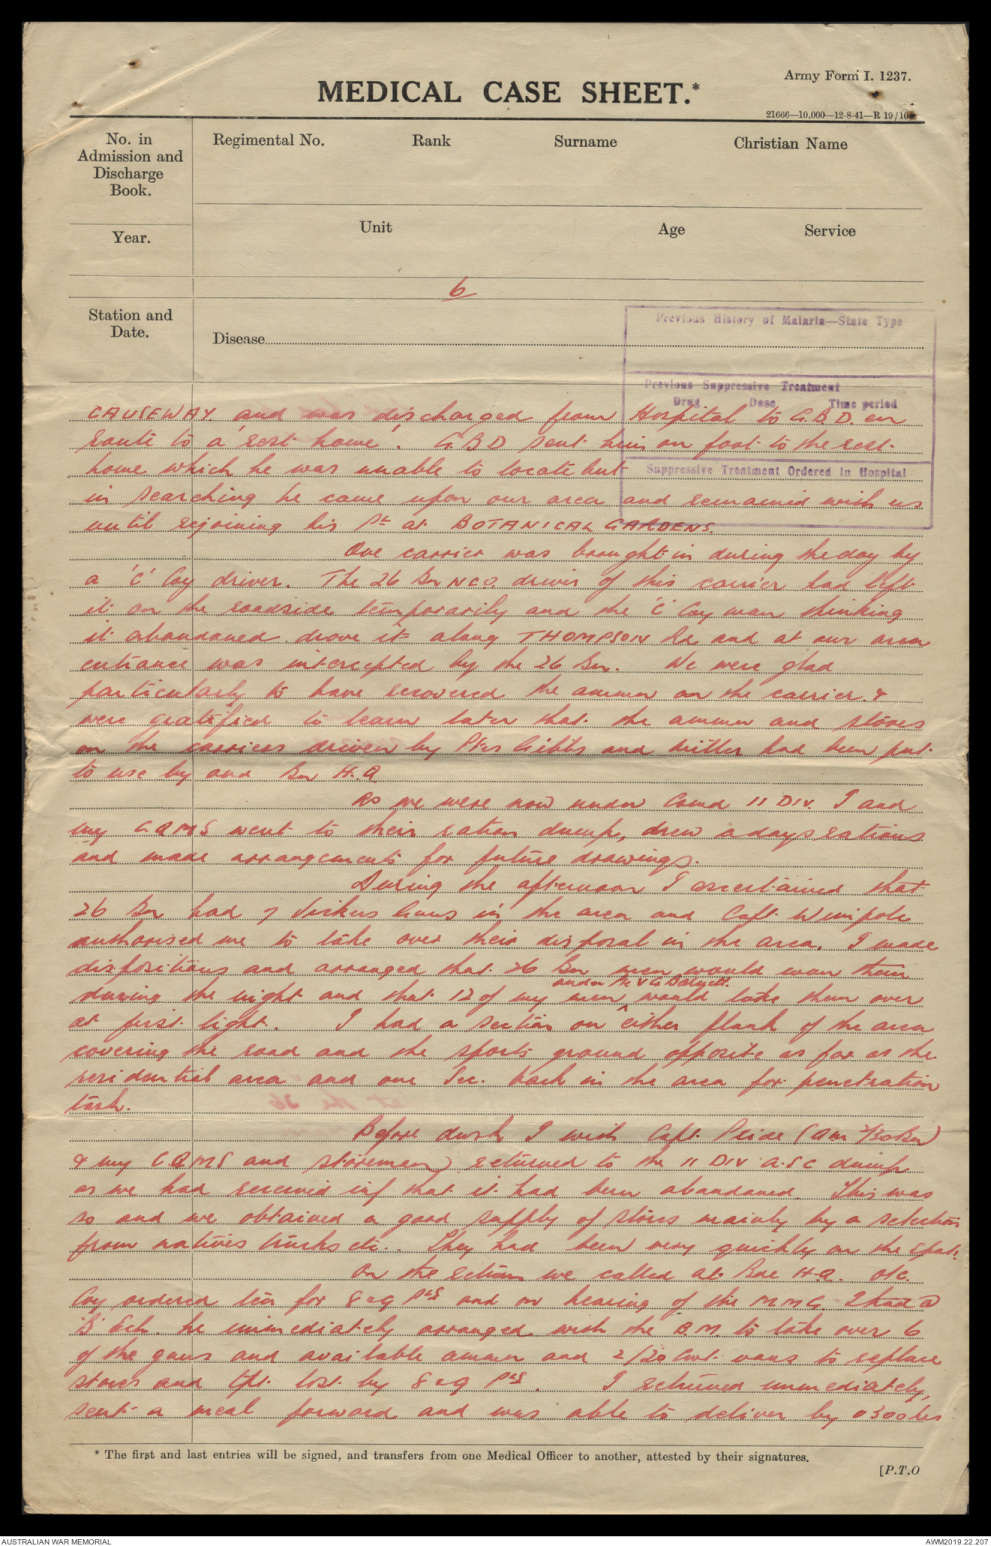 Army Form I. 1237.
MEDICAL CASE SHEET.*
21666—10,000—12-8-41—R 19/10
No. in
Admission and
Discharge
Book.
Regimental No. Rank Surname Christian Name
Year.
Unit Age Service
6
Station and
Date.
Disease
Previous History of Malaria—State Type
Previous Suppressive Treatment
Drug Dose Time period
Suppressive Treatment Ordered in Hospital
CAUSEWAY and was discharged from Hospital to G.B.D. en
route to a 'rest home'. G.B.D sent him on foot to the rest
home which he was unable to locate but
in searching he came upon our area and remained with us
until rejoining his Pl at BOTANICAL GARDENS.
One carrier was brought in during the day by
a 'C' Coy driver. The 26 Bn NCO driver of this carrier had left
it on the roadside temporarily and the 'C' Coy man thinking
it abandoned drove it along THOMPSON Rd and at our area
entrance was intercepted by the 26 Bn. We were glad
particularly to have recovered the ammn on the carrier &
were gratified to learn later that the ammn and stores
on the carriers driven by Ptes Gibbs and had been put
to use by and Bn H.Q
As we were now under Comd 11 DIV I and
my CQMS went to their ration dump, drew a days rations
and made arrangements for future drawings.
During the afternoon I ascertained that
26 Bn had 7 Vickers Guns in the area and Capt Wimpole
authorised me to take over their disposal in the area. I made
dispositions and arranged that 26 Bn men would man them
under
during the night and that 12 of my men, would take them over
at first light. I had a section on either flank of the area
covering the road and the sports ground opposite as far as the
residential area and one Sec. back in the area for penetration
task.
Before dusk I with Capt Peide (
& my CQMS and storeman) returned to the 11 DIV A.S.C dump
as we had received inf that it had been abandoned. This was
so and we obtained a good supply of stores mainly by a selection
from natives trucks etc.. They had been very quickly on the spot.
On the return we called at Bde H.Q. O/C
Coy ordered tea for 8 & 9 Pls and on hearing of the M.M.G. I had @
'B' Ech. he immediately arranged with the B.M. to take over 6
of the guns and available ammn and 2/20 Cwt vans to replace
stores and tpt lost by 8 & 9 Pls. I returned immediately,
sent a meal forward and was able to deliver by 0300hrs
* The first and last entries will be signed, and transfers from one Medical Officer to another, attested by their signatures.
[P.T.O
AUSTRALIAN WAR MEMORIAL
AWM2019.22.207